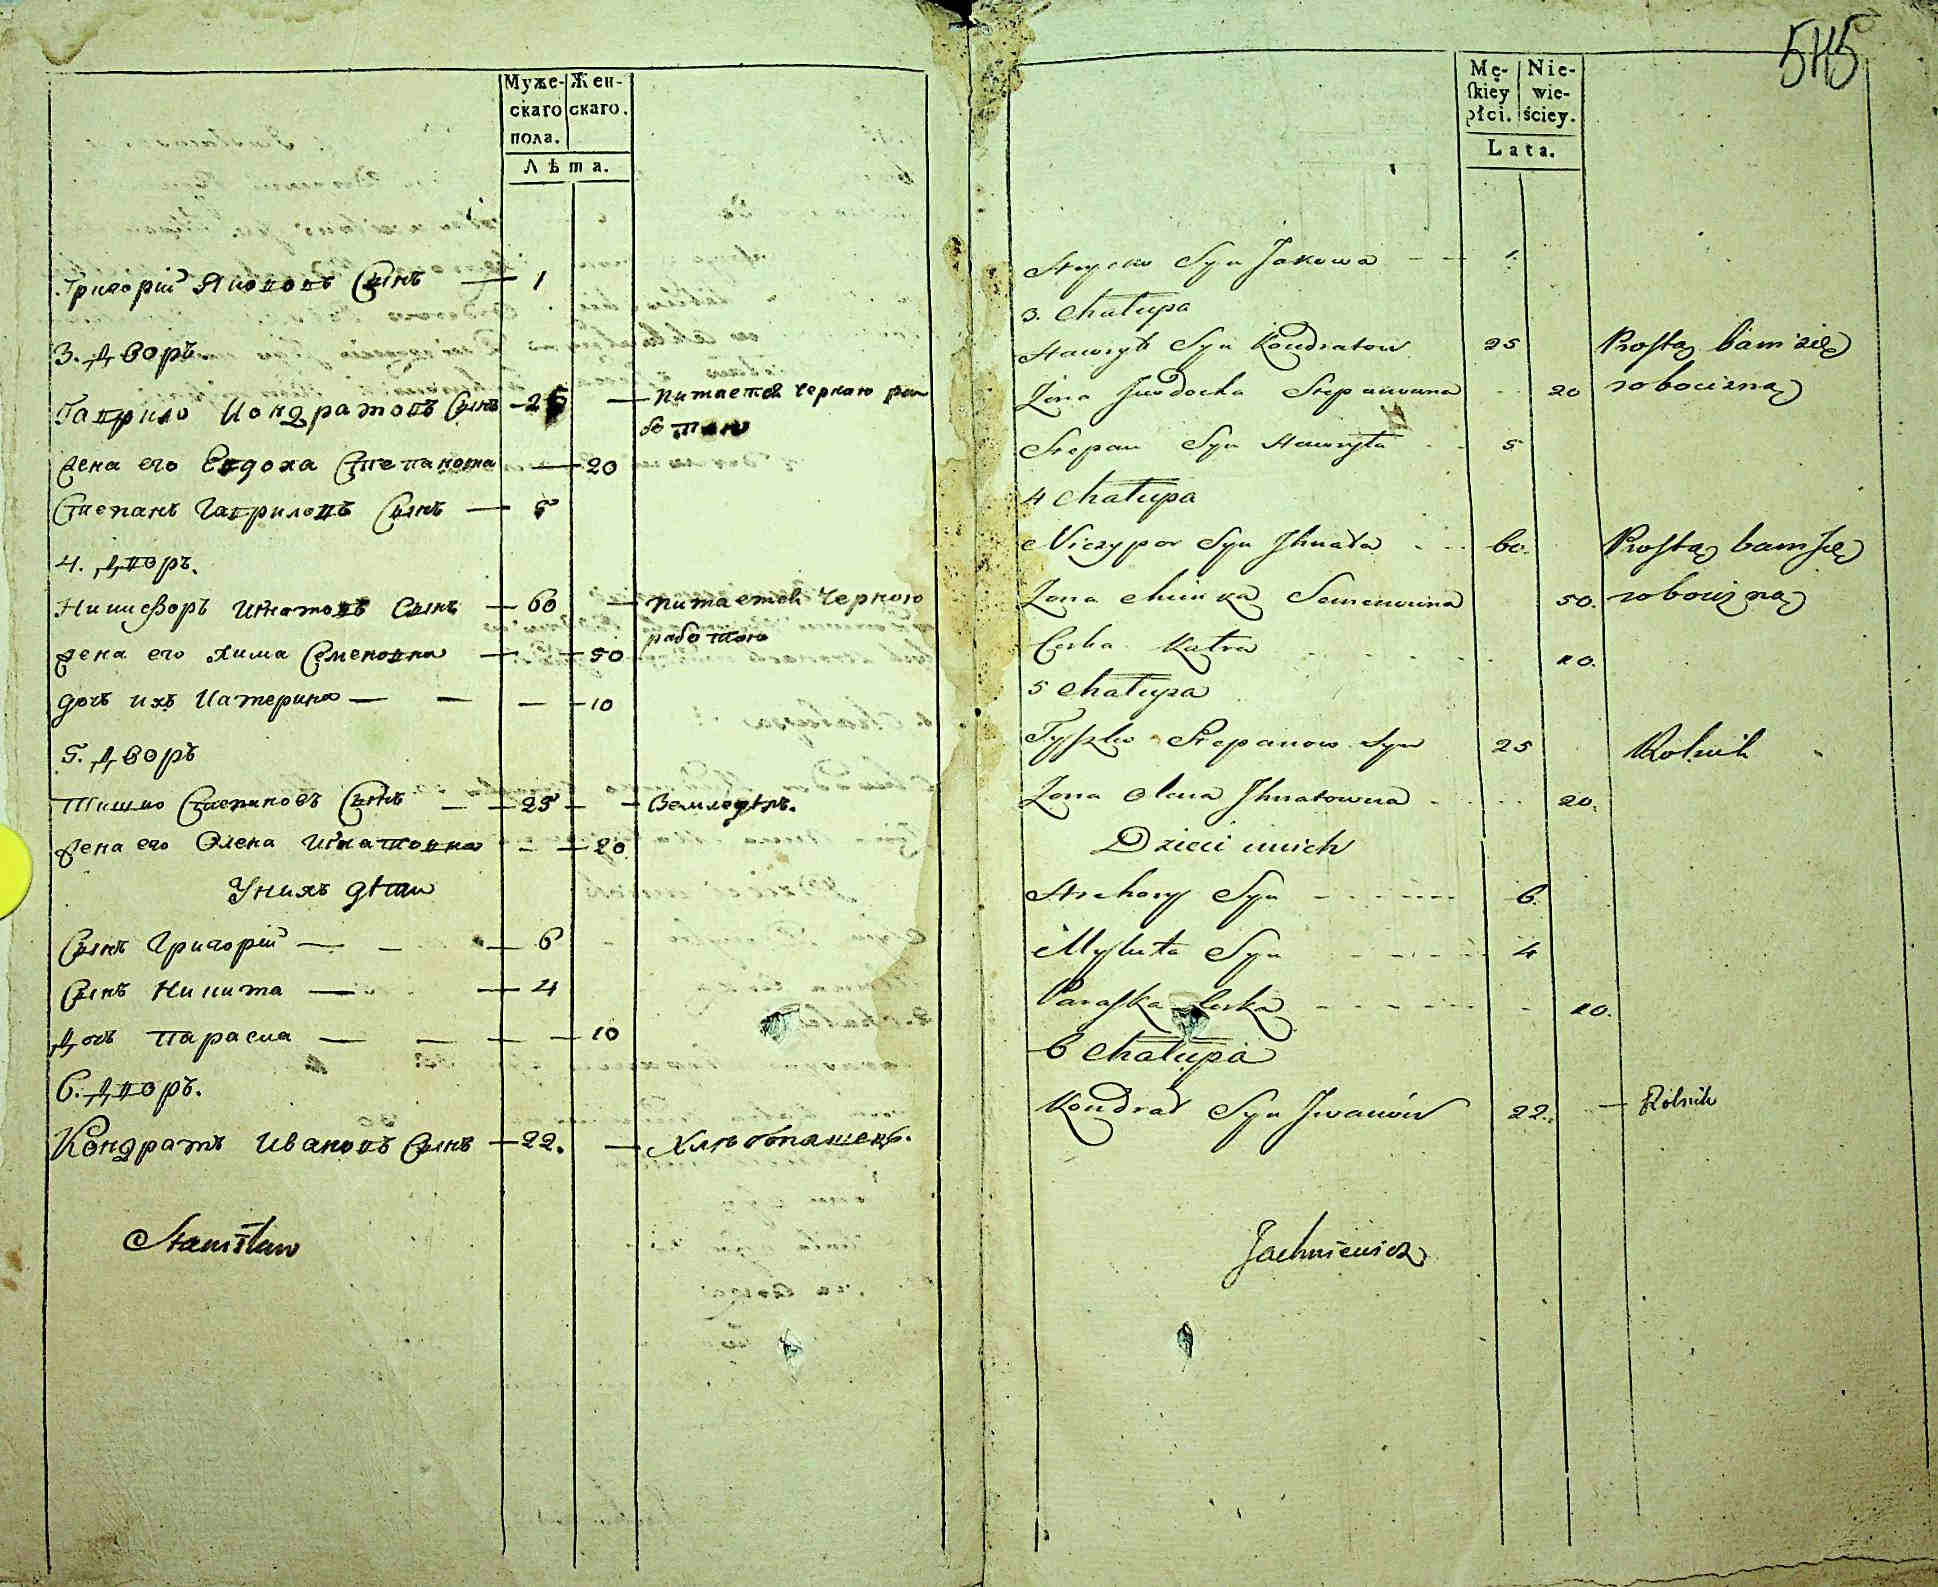 Муже-
скаго
пола.
Жен-
скаго.
Лѣта.
Григорій Якововъ Сынъ — 1
3. дворъ.
Гаврило Кондратовъ Сынъ — 25 — питается черною ра
ботою
жена его Евдоха Степановна — 20
Степанъ Гавриловъ Сынъ — 5
4. дворъ.
Никифоръ Игнатовъ Сынъ — 60 — питается черною
работою
жена его Хима Семеновна — 50
дочь ихъ Катерина — — — 10
5. дворъ
Тишко Степановъ Сынъ — 25 — Земледѣлъ.
жена его Олена Игнатовна — 20
У нихъ дѣти
Сынъ Григорій — — 6
Сынъ Никита — 4
Дочь Параска — — — 10
6. дворъ.
Кондратъ Ивановъ Сынъ — 22. — Хлѣбопашецъ.
Stanisław
545
Mę-
ſkiey
płci.
Nie-
wie-
ściey.
Lata.
Hrycko Syn Jakowa — — 1.
3. Chałupa
Hawryło Syn Kondratow 25 Prostą bawi się
Żona Jewdocha Stepanowna 20 robocizną
Stepan Syn Hawryła 5
4 Chałupa
Niczypor Syn Ihnata 60. Prostą bawi się
Żona Chimka Semenowna 50. robocizną
Corka Katra 10.
5 Chałupa
Tyszko Stepanow Syn 25 Rolnik
Żona Olena Ihnatowna 20.
Dzieci u nich
Hrehory Syn 6.
Mykita Syn 4
Paraska Corka 10.
6 Chałupa
Kondrat Syn Iwanów 22. — Rolnik
Jachniewicz